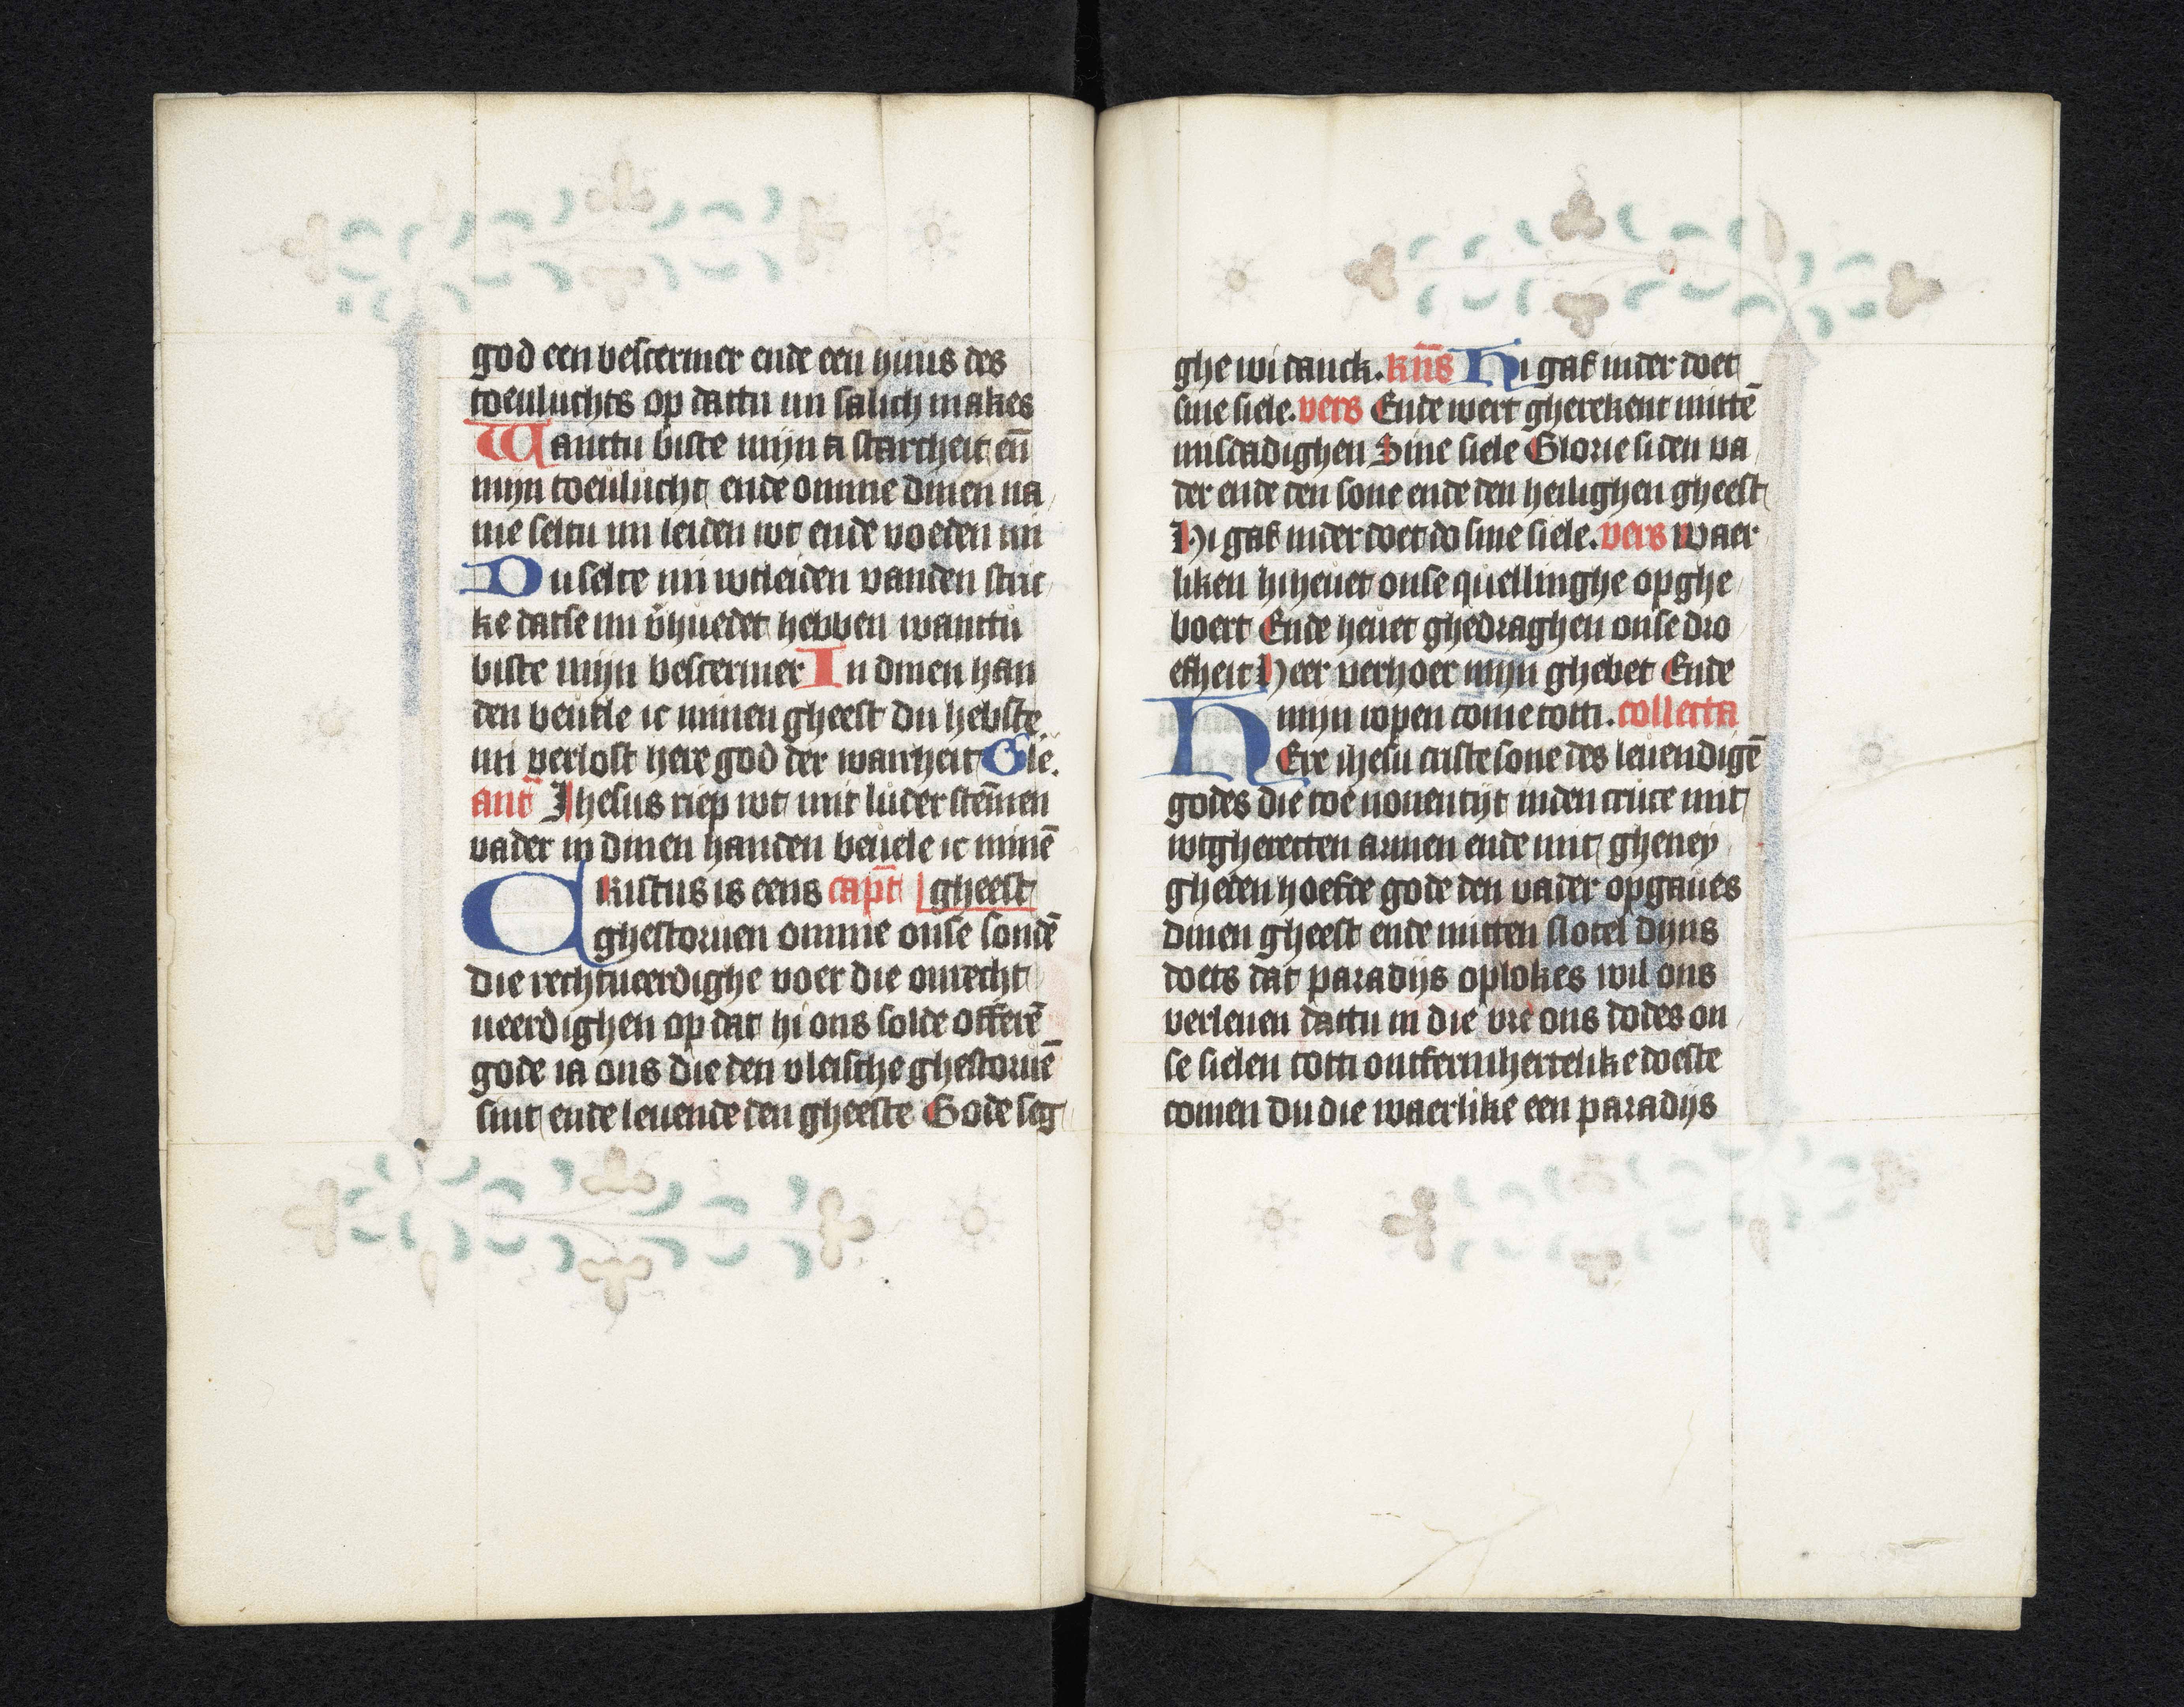 god een bescermer ende een huus des
toeuluchts op dattu mi salich makes
Wanttu biste mijn a starcheit en̄
mijn toeulucht ende omme dinen na
me seltu mi leiden wt ende voeden mi
Du selte mi wtleiden vanden stric
ke datse mi v̄huedet hebben wanttu
biste mijn bescermer In dinen han
den beuele ic minen gheest Du hebste
mi verlost here god der waerheit Gle.
ant̄ Ihesus riep wt mit luder stēmen
vader in dinen handen beuele ic minē
CRistus is eens capt̄ gheest
ghestoruen omme onse sondē
Die rechtuerdighe voer die onrecht
ueerdighen op dat hi ons solde offerē
gode ia ons die den vleische ghestoruē
sint ende leuende den gheeste Gode seg
ghe wi danck. Rn̄s Hi gaf inder doet
sine siele. vers Ende wert gherekent mittē
misdadighen Sine siele Glorie si den va
der ende den sone ende den heilighen gheest
Hi gaf inder doet do sine siele. vers Waer
liken hi heuet onse quellinghe op ghe
boert Ende heuet ghedraghen onse dro
efheit Heer verhoer mijn ghebet Ende
mijn ropen come totti. collecta
HEre ihesu criste sone des leuendigē
godes die toe nonentijt inden cruce mit
wtgherecten armen ende mit gheney
gheden hoefde gode den vader opgaues
dinen gheest ende mitten slotel dijns
doets dat paradijs oplokes wil ons
verlenen dattu in die vre ons dodes on
se sielen totti ontfermhertelike doeste
comen Du die waerlike een paradijs